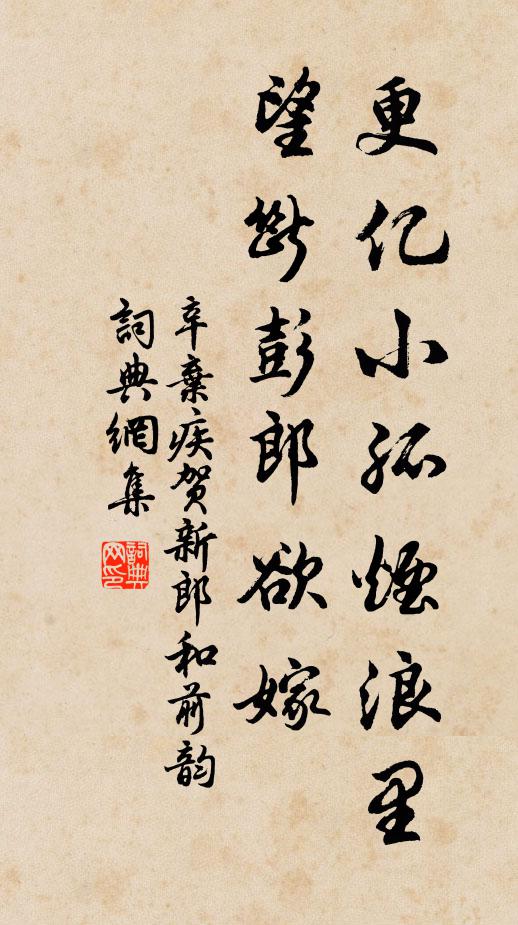 更亿小孤煙浪里
望断彭郎欲嫁
辛棄疾贺新郎和前韵
詞典網集
詞典网印